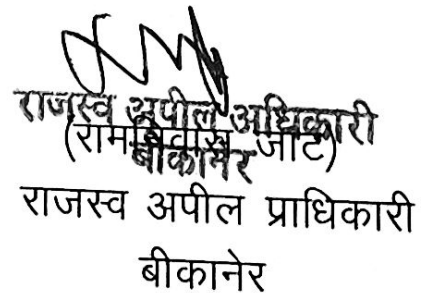 राजस्व अपील अधिकारी
(रामनिवास जाट)
बीकानेर
राजस्व अपील प्राधिकारी
बीकानेर